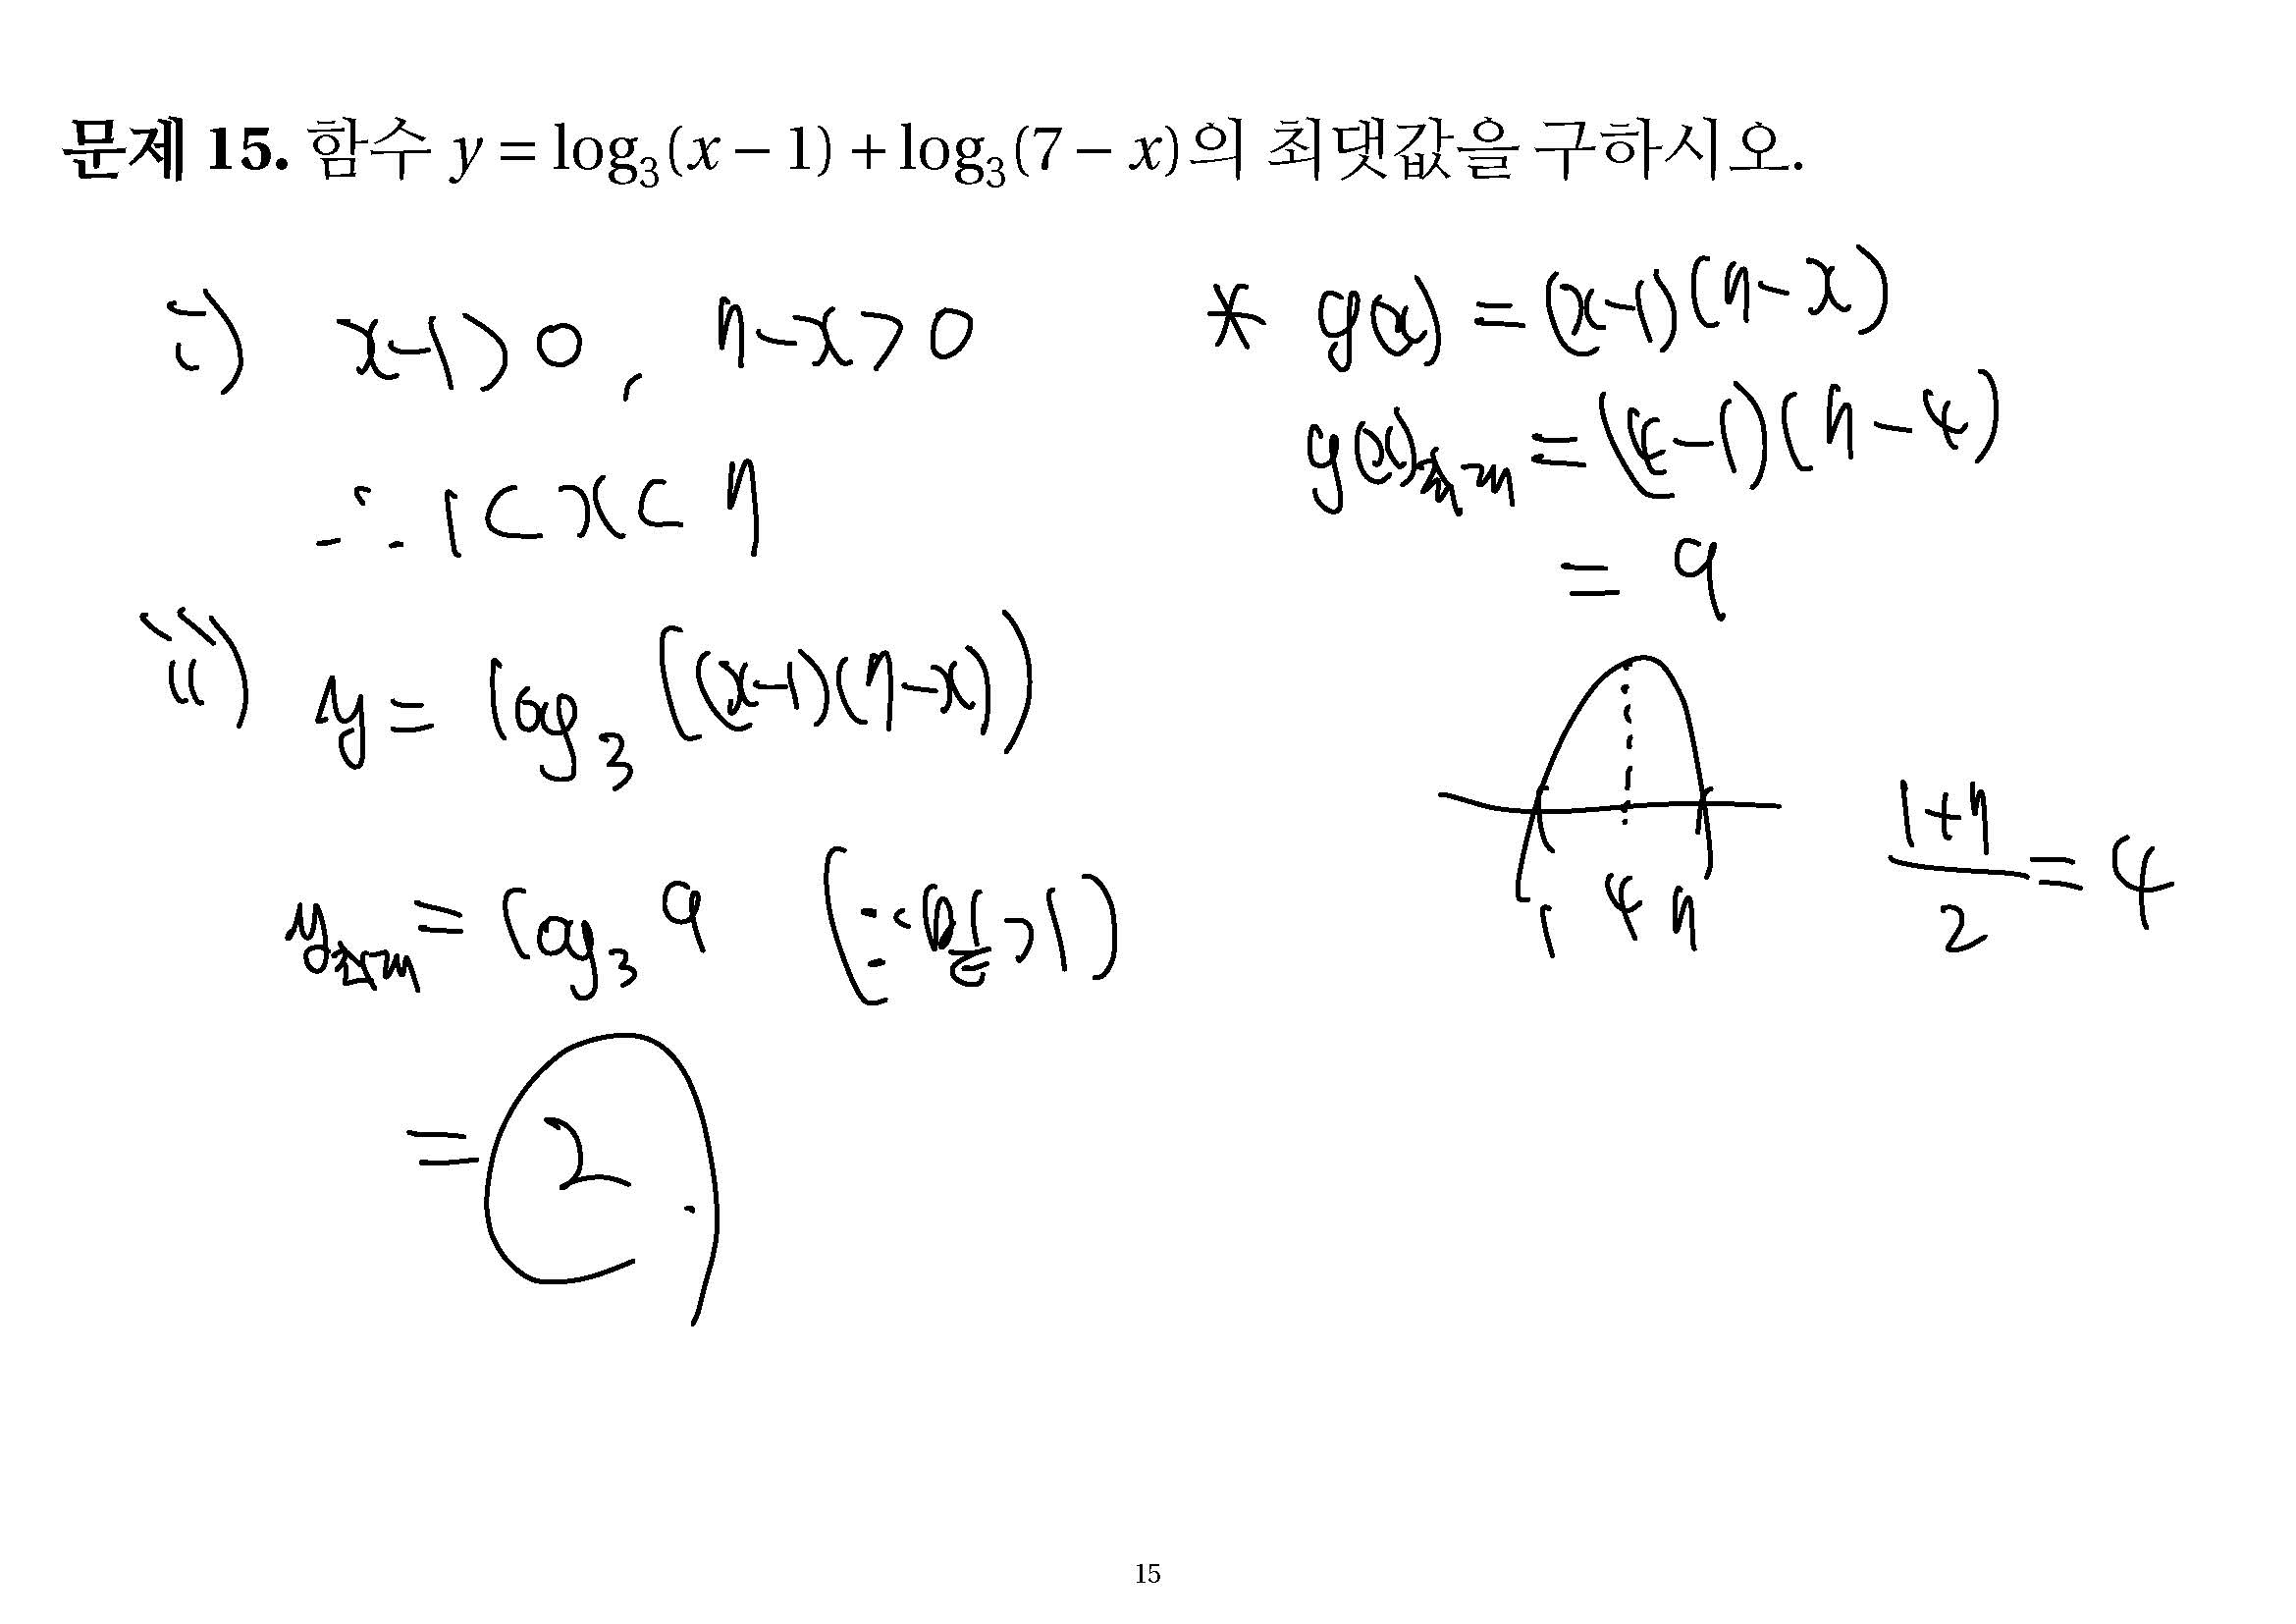 문제 15. 함수 y = log₃(x − 1) + log₃(7 − x)의 최댓값을 구하시오.
i) x-1>0, 7-x>0
∴ 1<x<7
ii) y = log₃((x-1)(7-x))
y최대 = log₃9 (∵ 밑>1)
= 2.
* g(x) = (x-1)(7-x)
g(x)최대 = (4-1)(7-4)
= 9
1 4 7
(1+7)/2 = 4
15